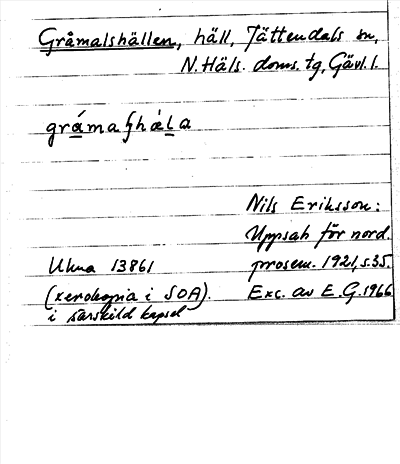 Gråmalshällen, häll, Jättendals sn,
N. Häls. doms. tg, Gävl. l.
gràmaʃhæ̀la
Nils Eriksson:
Uppsats för nord.
Ukna 13861 prosem. 1921, s. 35.
(xerokopia i SOA). Exc. av E. G. 1966
i särskild kapsel